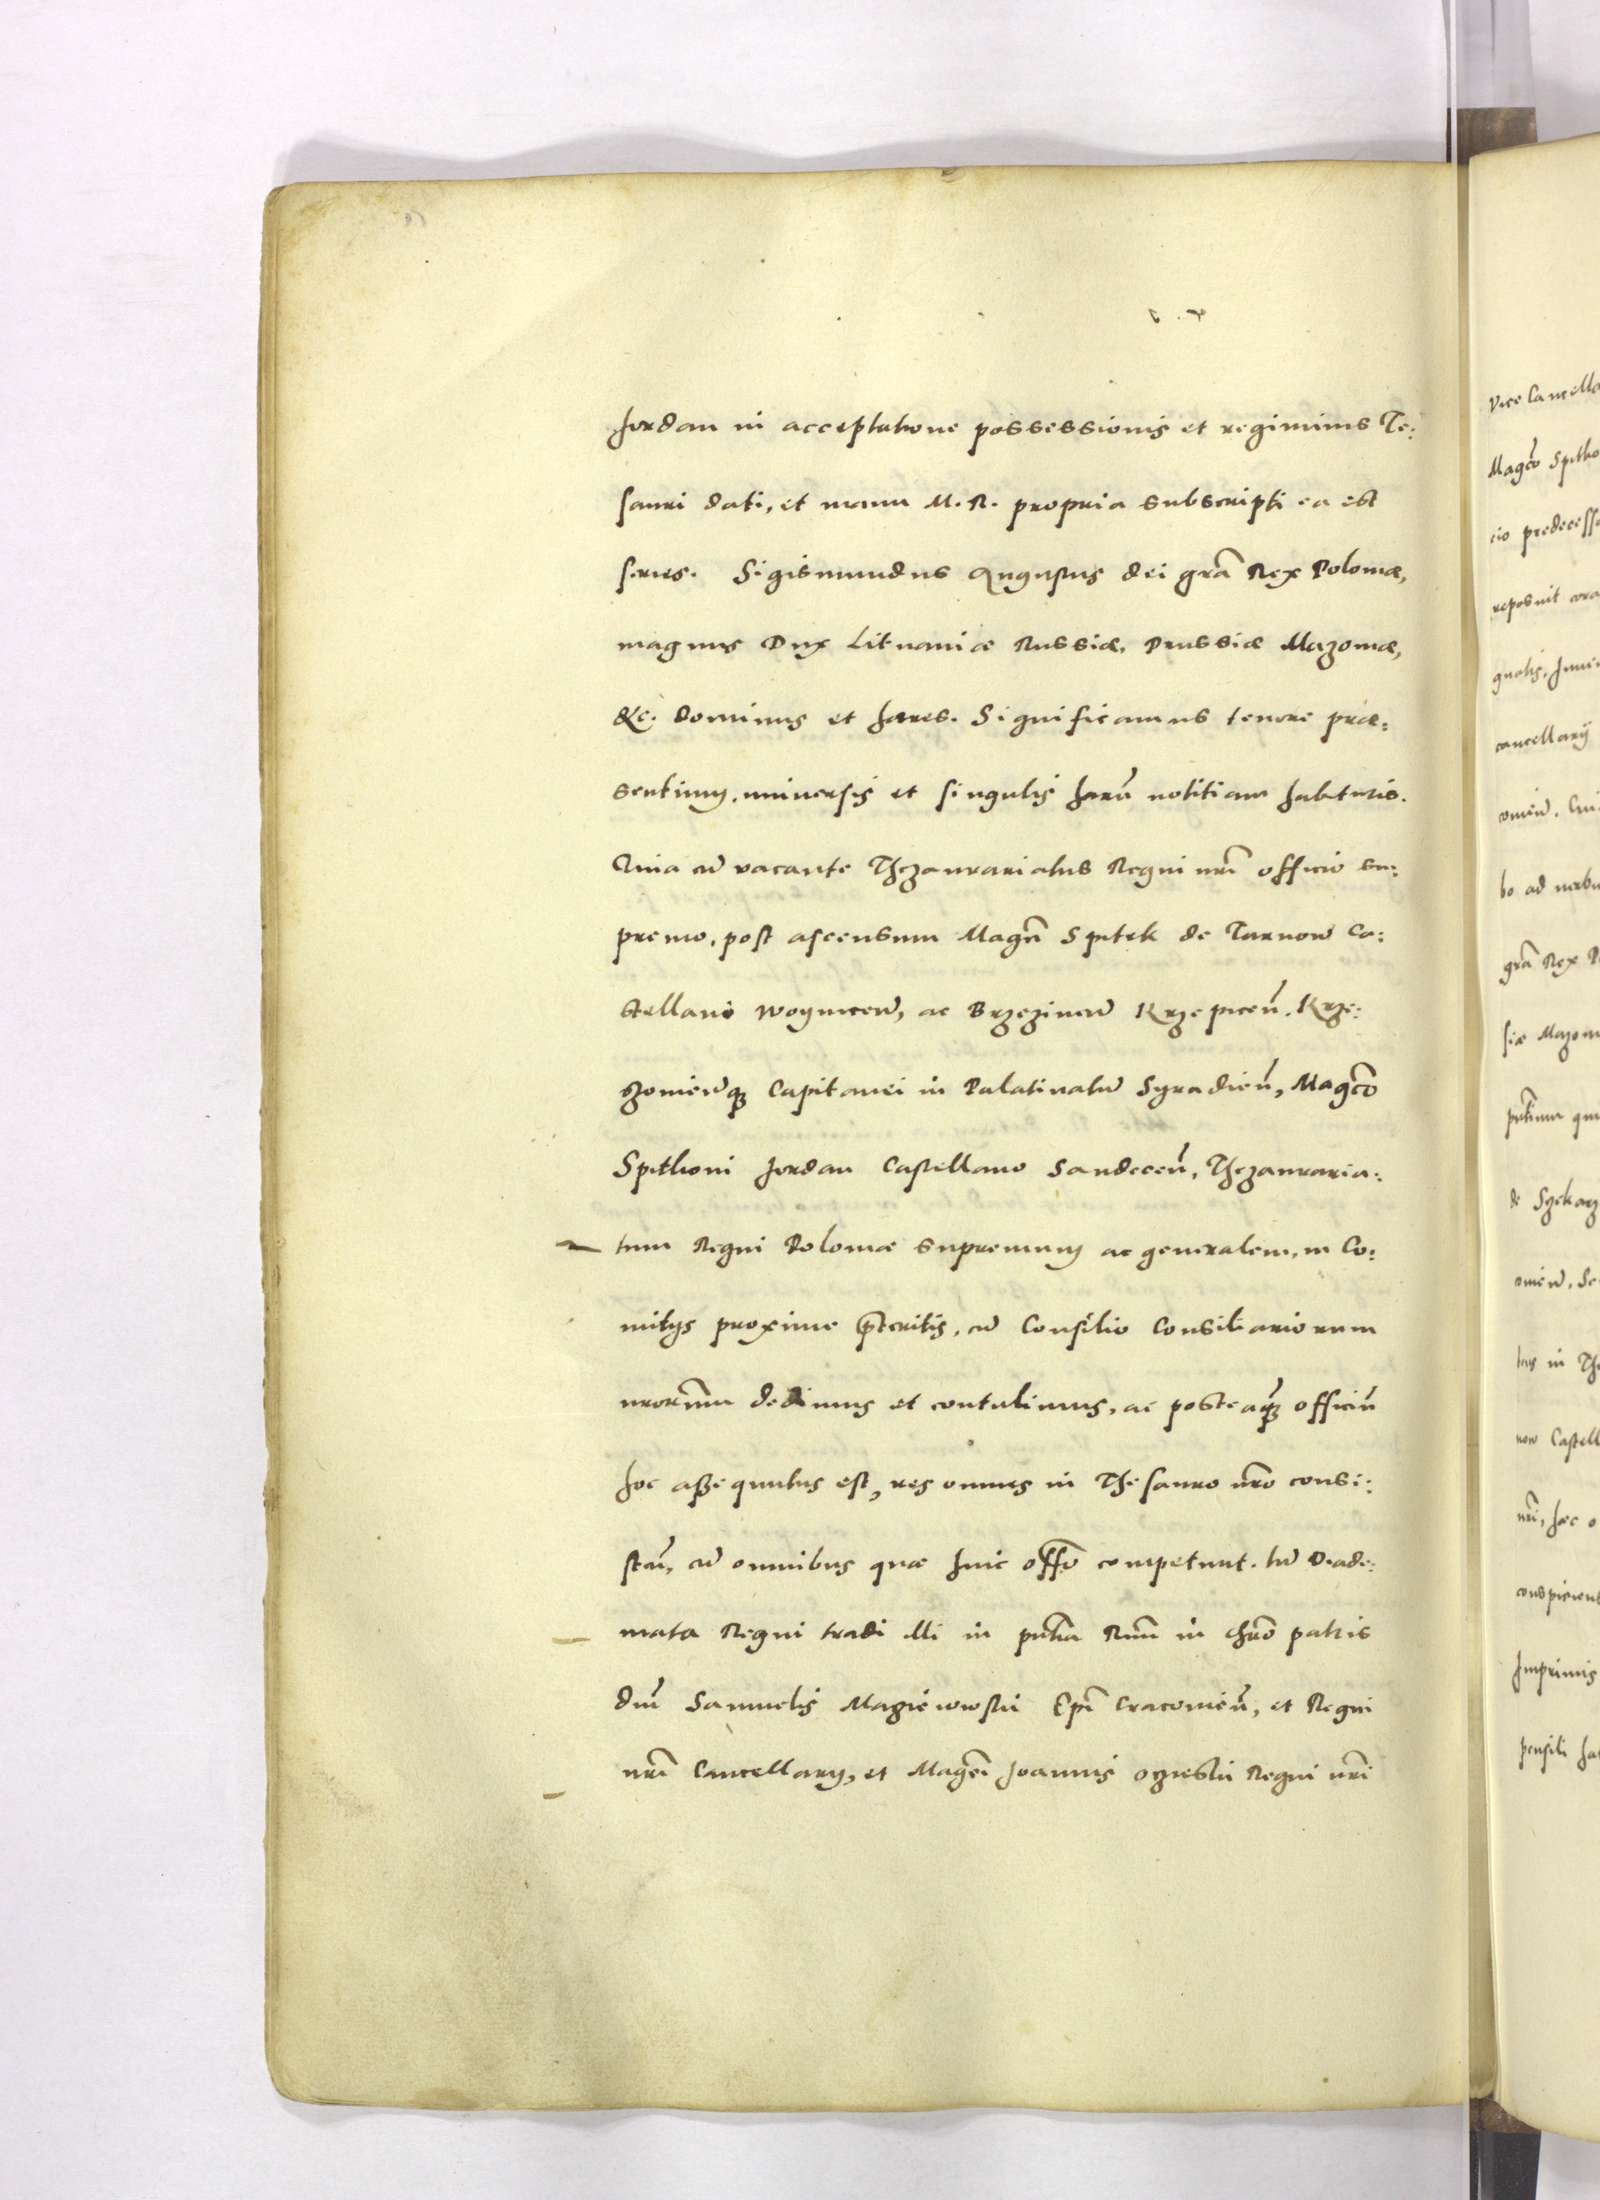 Jordan in acceptatione possessionis et regiminis Te:
sauri dati, et manu M. R. propria subscripti ea est
series. Sigismundus Augustus dei grã Rex Poloniæ,
magnus Dux Lituaniæ Russiæ, Prussiæ Mazoniæ,
&c. Dominus et hæres. Significamus tenore præ:
sentium, universis et singulis harũ notitiam habituris.
Quia cũ vacante Thezaurariatus Regni nrĩ officio su:
premo, post ascensum Magcĩ Spitek de Tarnow Ca:
stellani Woyniceñ, ac Brzezineñ Krzepiceñ. Krze:
zovieñq; Capitanei in Palatinatũ Syradieñ, Magcõ
Spithoni Jordan Castellano Sandeceñ, Thezauraria:
tum Regni Poloniæ supremum ac generalem, in Co:
mitijs proxime p̃teritis, cũ Consilio Consiliariorum
nrorum̃ dedimus et contulimus, ac posteaq̃ officiũ
hoc assequutus est, res omnes in Thesauro nrõ consi:
steñ, cũ omnibus quæ huic offõ competunt. tũ Diade:
mata Regni tradi illi in pñtia Rñdi in Chrõ patris
dñi Samuelis Maczieiowskii Epĩ Cracovieñ, et Regni
nrĩ Cancellarij, et Magcĩ Joannis Ocziestii Regni nrĩ
Vice Cancella
Magcõ Spitho
cio predecess
reposuit cora
gnatis, Inue
cancellarij
bo ad verbu
grã Rex P
siæ Mazoni
de Szekarz
tus in Th
now Castell
nrĩ, hæc o
conspiciunt
Imprimis